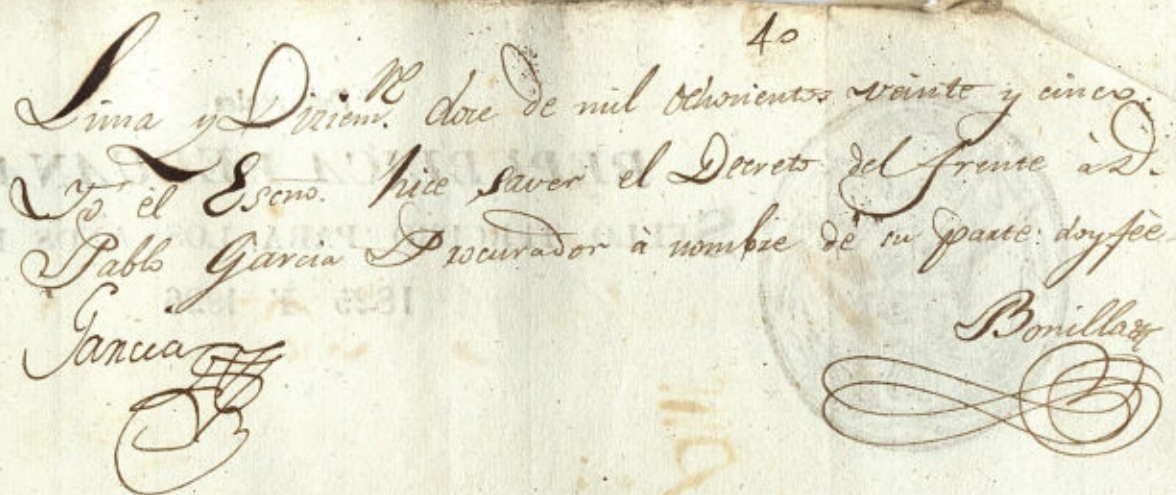 40
Lima y Diziem.re doce de mil ochocientos veinte y cinco.
Yo el Escno. hice saver el Decreto del frente à D.
Pablo Garcia Procurador à nombre de su parte: doy fèe
Garcia
Bonilla